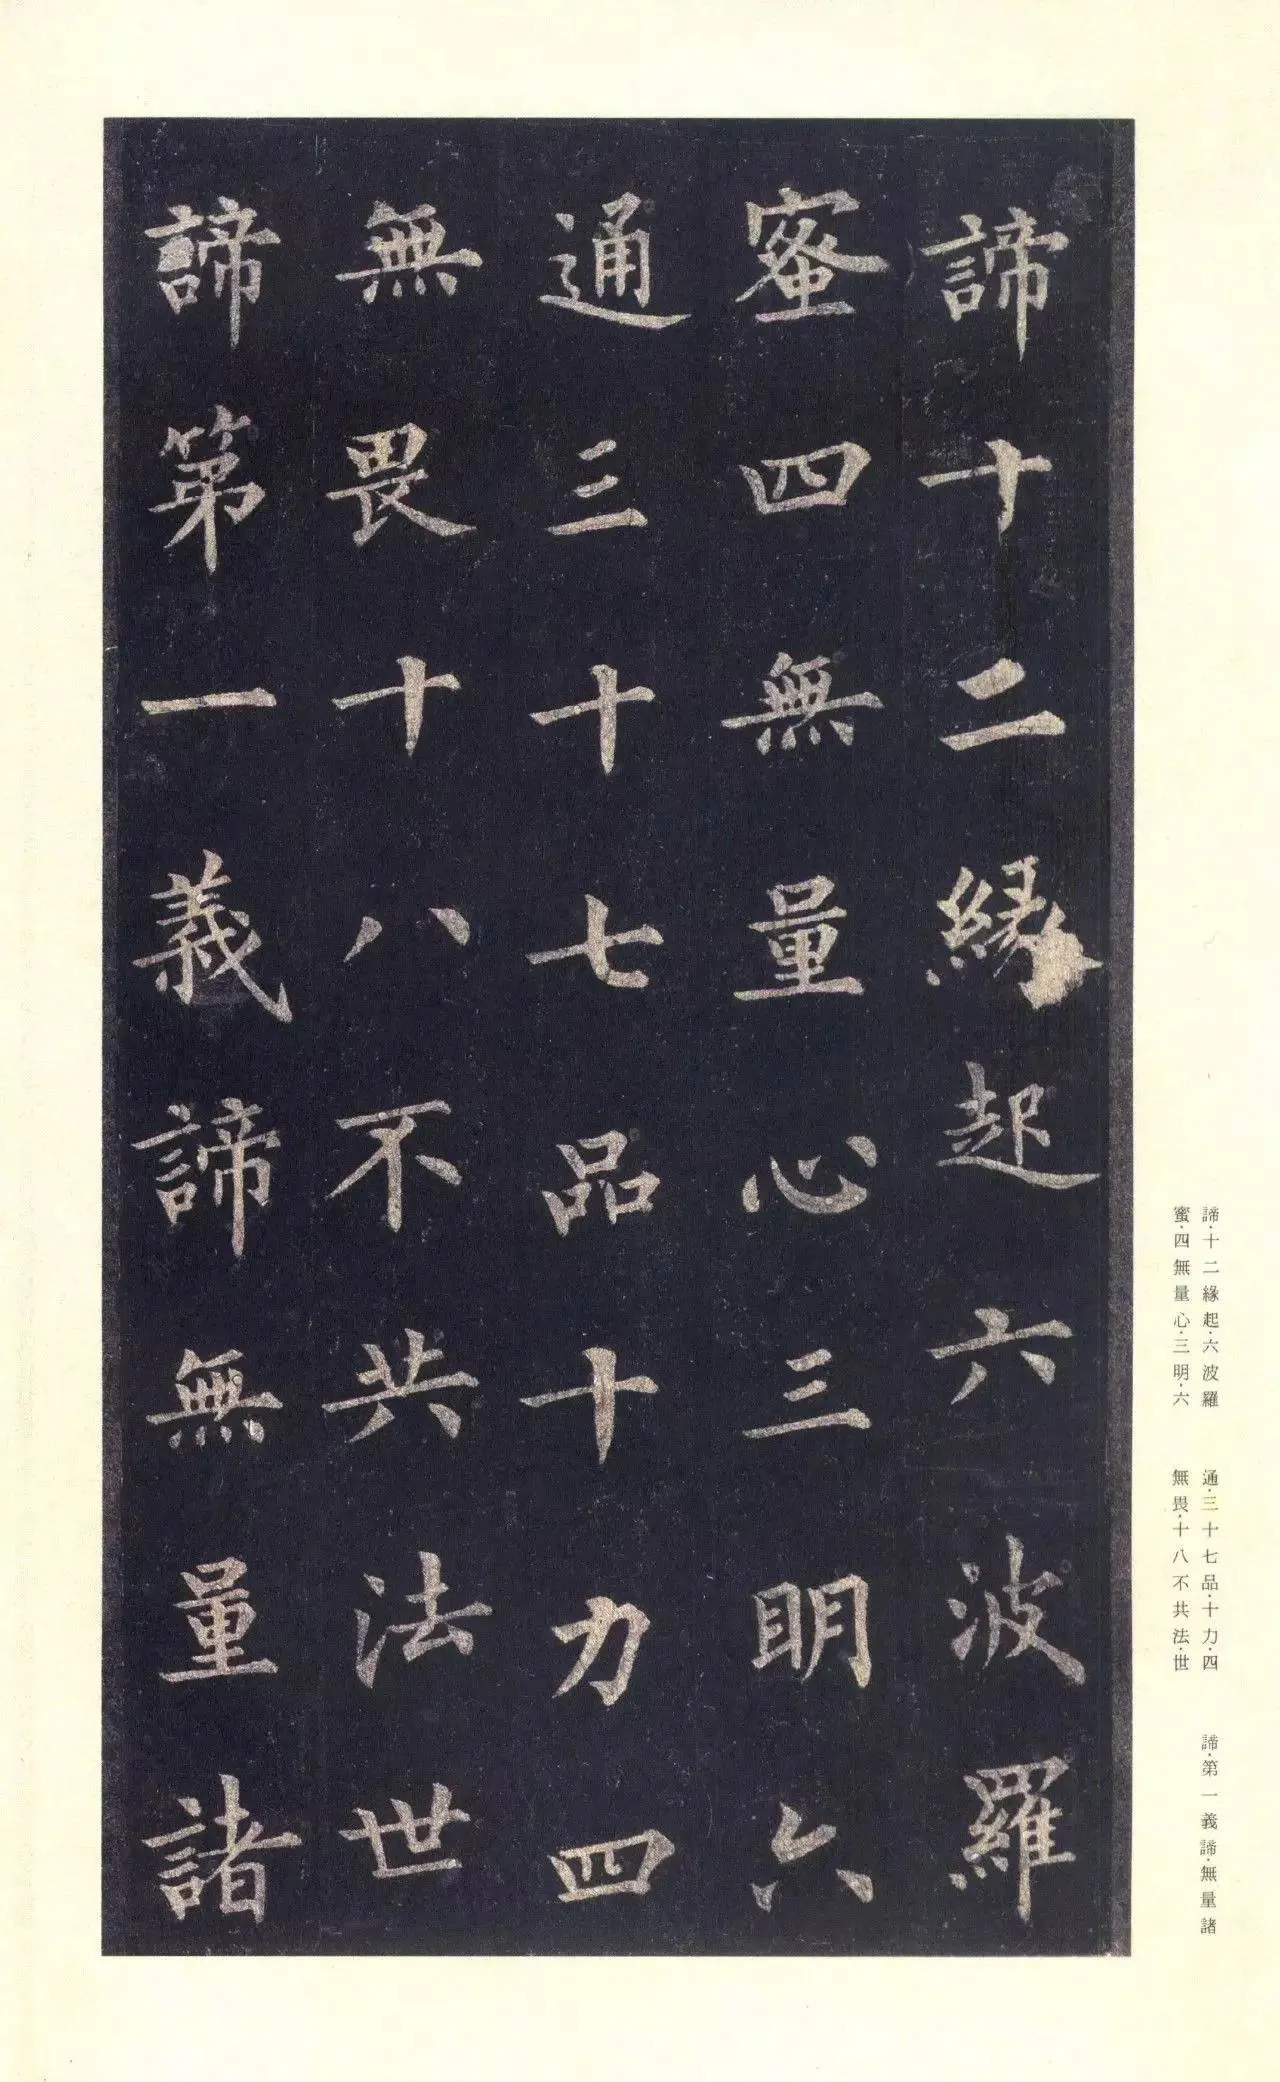 諦十二緣起六波羅
蜜四無量心三明六
通三十七品十力四
無畏十八不共法世
諦第一義諦無量諸
諦·十二緣起·六波羅
蜜·四無量心·三明·六
通·三十七品·十力·四
無畏·十八不共法·世
諦·第一義諦·無量諸